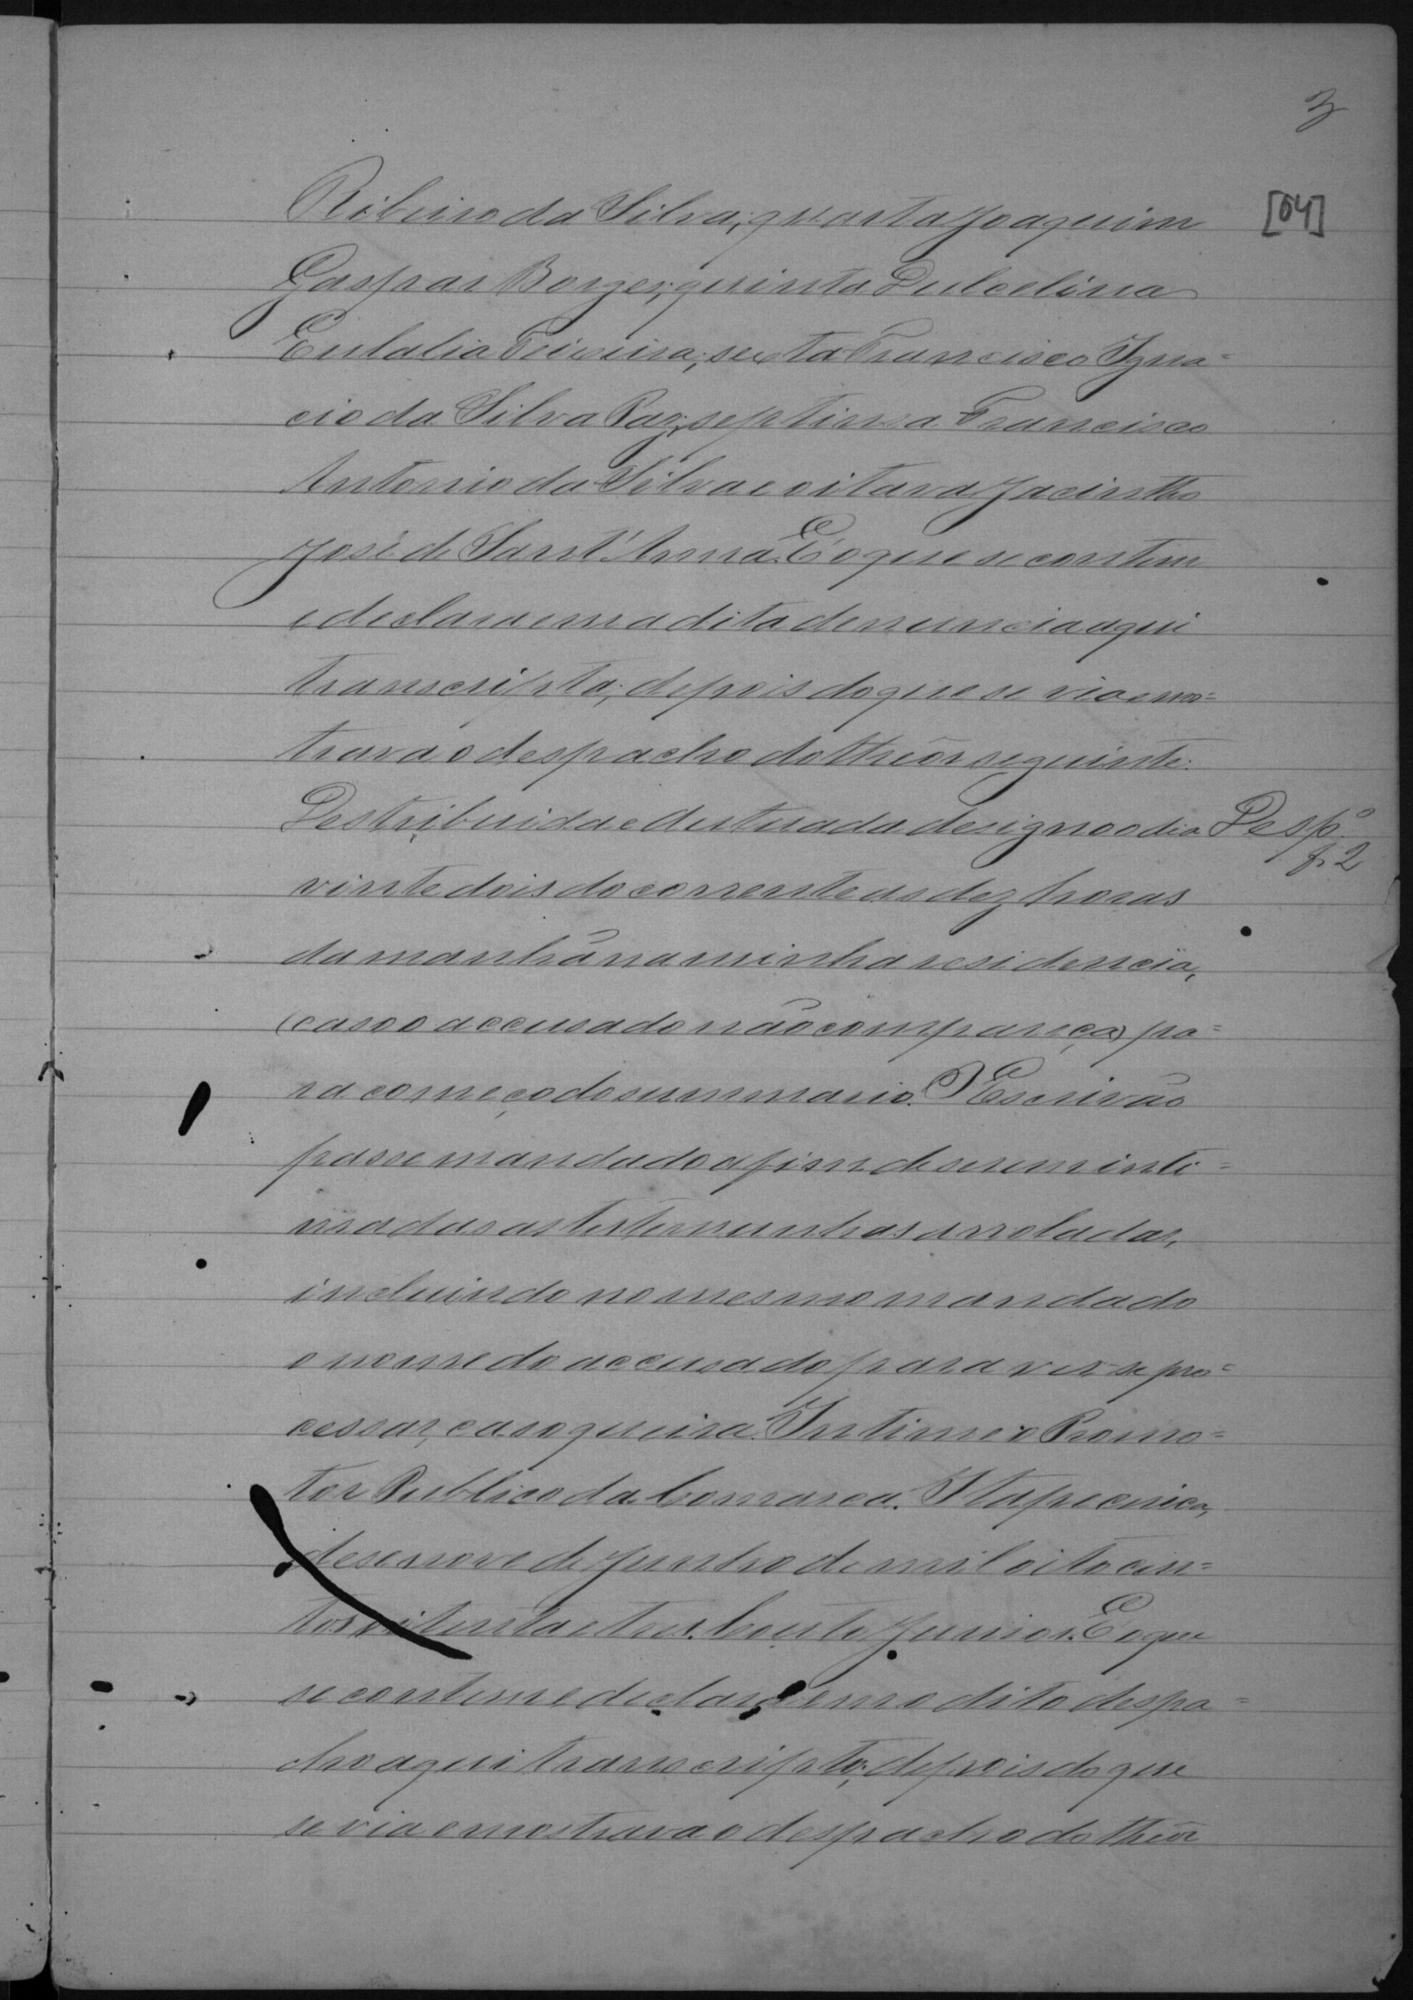 3
[04]
Ribeiro da Silva; quarta Joaquim
Gaspar Borges; quinta Dulcelina
Eulalia Teixeira; sexta Francisco Igna=
cio da Silva Paz; septima Francisco
Antonio da Silva e oitava Jacintho
José de Sant'Anna. E o que se contem
e declara em a dita denuncia aqui
transcripta; depois do que se via e mos=
trava o despacho do theor seguinte:
Destribuida e autuada designo o dia
Desp.º
f. 2
vinte dois do corrente as dez horas
da manhã na minha residencia,
(caso o accusado não compareça) pa=
ra começo do summario. O Escrivão
passe mandado a fim de serem inti=
madas as testemunhas arroladas,
incluindo no mesmo mandado
o nome do accusado para ver-se pro=
cessar, caso queira. Intime o Promo=
tor Publico da Comarca. Itapecirica,
desenove de Junho de mil oito cen=
tos oitenta e tres. Couto Junior. E o que
se contem e declara em o dito despa=
cho aqui transcripto; depois do que
se via e mostrava o despacho do theor